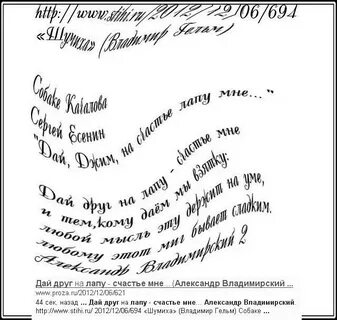 http://www.stihi.ru/2012/12/06/694
«Шумиха» (Владимир Гельм)
Собаке Качалова
Сергей Есенин
"Дай, Джим, на счастье лапу мне..."
Дай друг на лапу - счастье мне
и тем,кому даём мы взятку:
любой мысль эту держит на уме,
любому этот миг бывает сладким.
Александр Владимирский 2
Дай друг на лапу - счастье мне... (Александр Владимирский ...
www.proza.ru/2012/12/06/621
44 сек. назад ... Дай друг на лапу - счастье мне... Александр Владимирский.
http://www.stihi.ru/2012/12/06/694 «Шумиха» (Владимир Гельм) Собаке ...